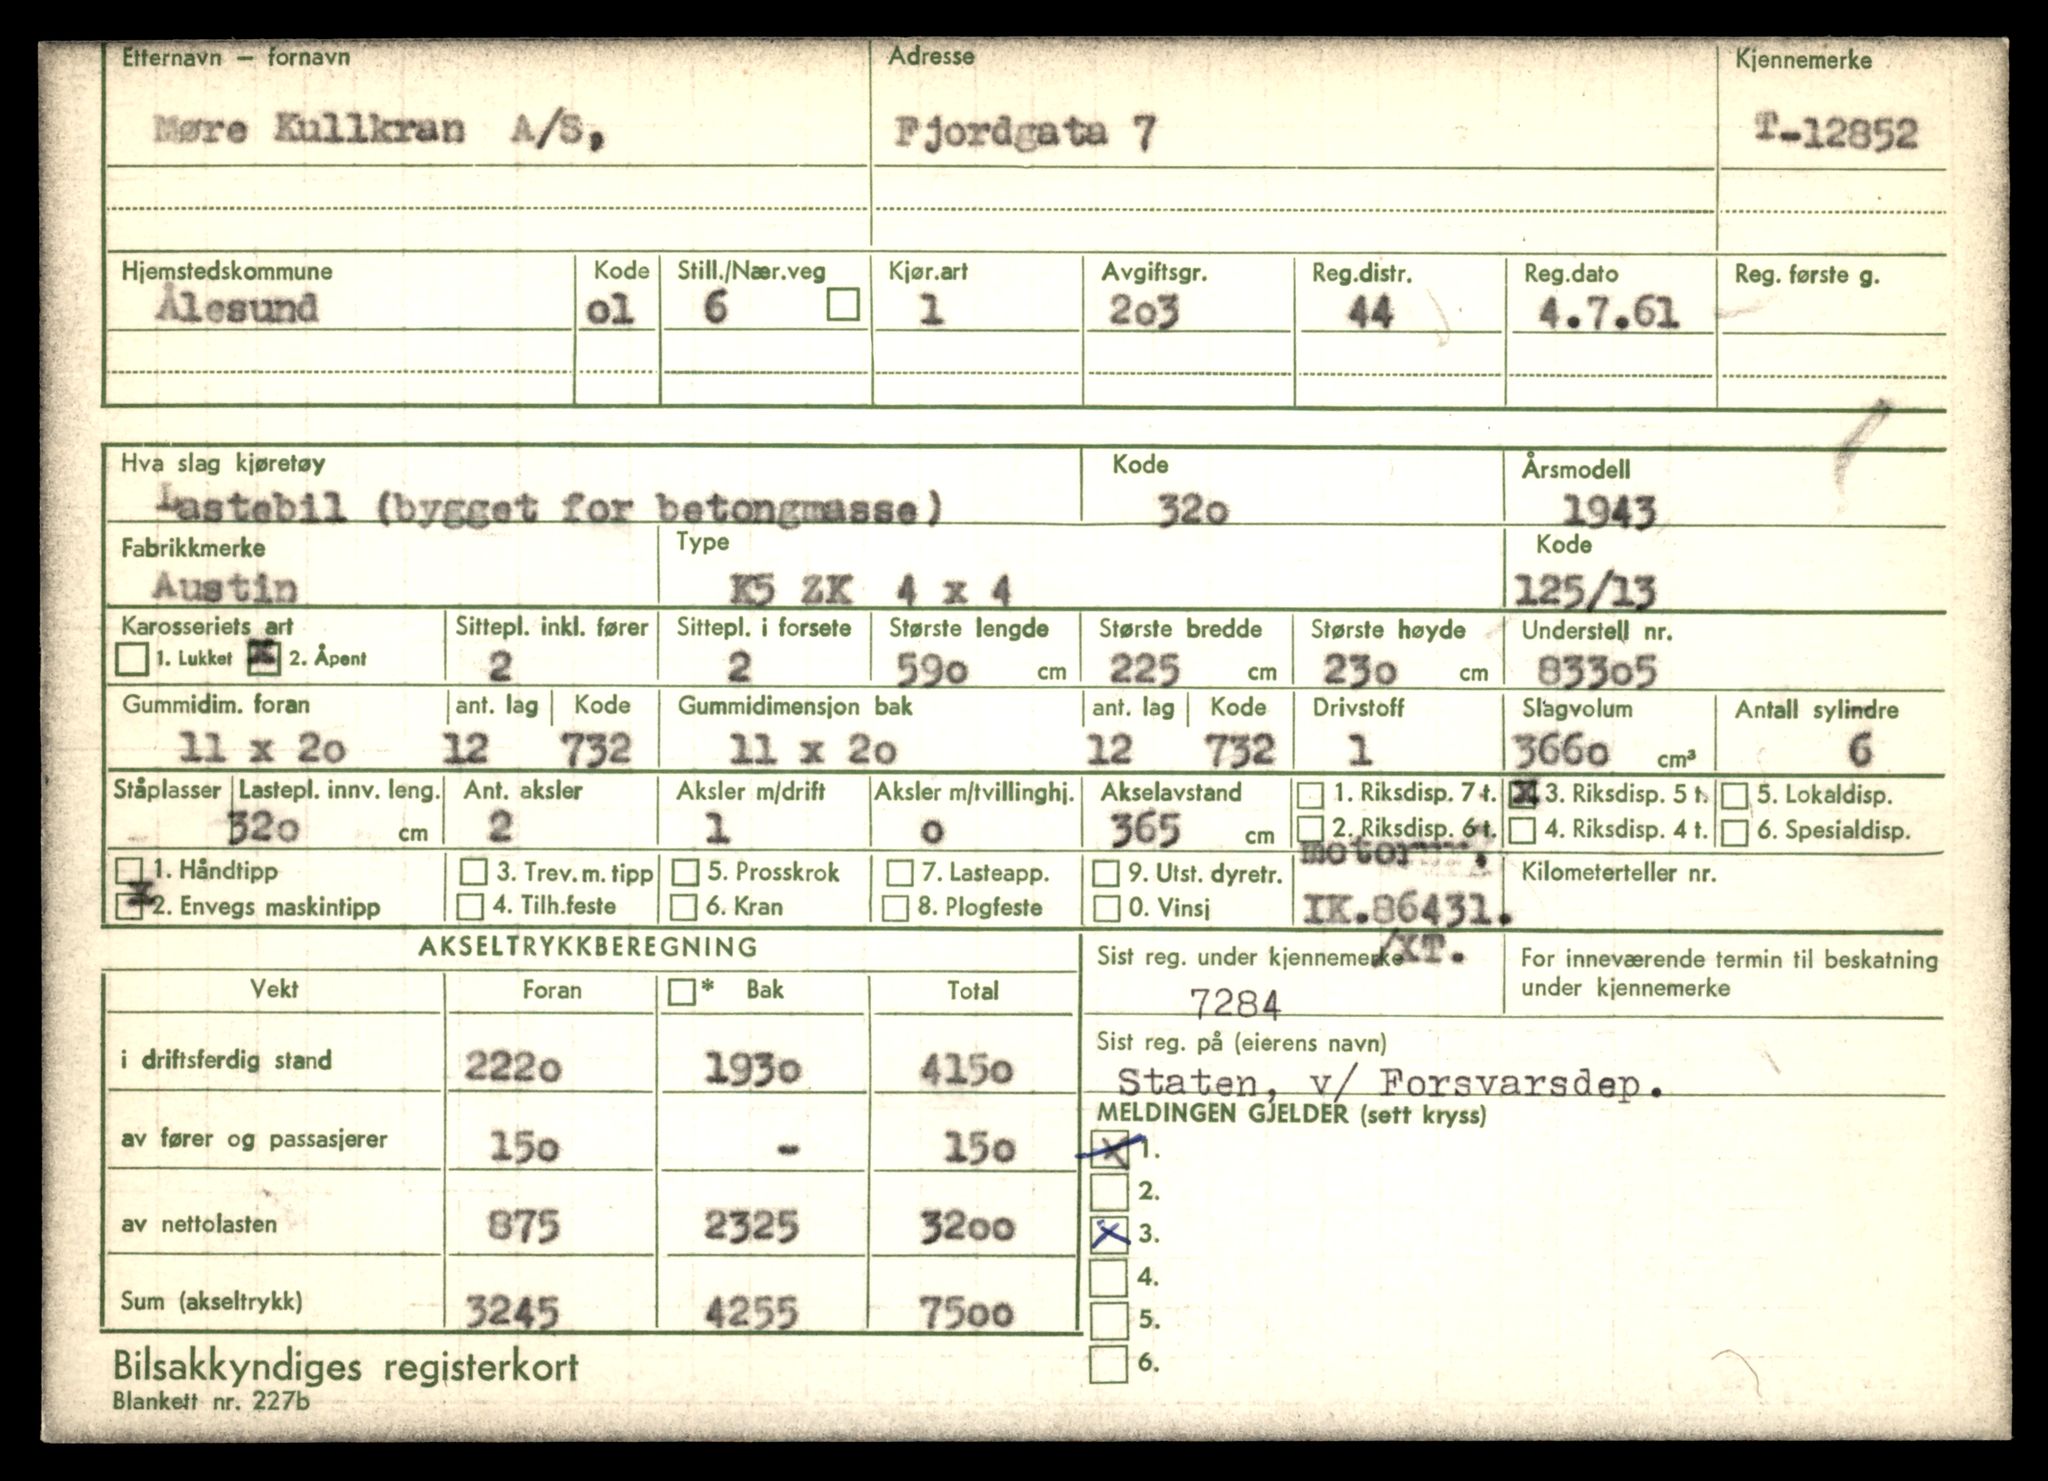 Etternavn — fornavn Adresse Kjennemerke
Møre Kullkran A/S, Fjordgata 7 T-12852
Hjemstedskommune Kode Still./Nær.veg Kjør.art Avgiftsgr. Reg.distr. Reg.dato Reg. første g.
Ålesund o1 6 1 2o3 44 4.7.61
Hva slag kjøretøy Kode Årsmodell
Lastebil (bygget for betongmasse) 32o 1943
Fabrikkmerke Type Kode
Austin K5 ZK 4 x 4 125/13
Karosseriets art Sittepl. inkl. fører Sittepl. i forsete Største lengde Største bredde Største høyde Understell nr.
1. Lukket x 2. Åpent 2 2 59o cm 225 cm 23o cm 833o5
Gummidim. foran ant. lag Kode Gummidimensjon bak ant. lag Kode Drivstoff Slagvolum Antall sylindre
11 x 2o 12 732 11 x 2o 12 732 1 366o cm³ 6
Ståplasser Lastepl. innv. leng. Ant. aksler Aksler m/drift Aksler m/tvillinghj. Akselavstand 1. Riksdisp. 7 t. x 3. Riksdisp. 5 t. 5. Lokaldisp.
32o cm 2 1 o 365 cm 2. Riksdisp. 6 t. 4. Riksdisp. 4 t. 6. Spesialdisp.
motornr.
1. Håndtipp 3. Trev. m. tipp 5. Prosskrok 7. Lasteapp. 9. Utst. dyretr. Kilometerteller nr.
x 2. Envegs maskintipp 4. Tilh.feste 6. Kran 8. Plogfeste 0. Vinsj IK.86431.
AKSELTRYKKBEREGNING /XT.
Sist reg. under kjennemerke For inneværende termin til beskatning
under kjennemerke
Vekt Foran * Bak Total
7284
Sist reg. på (eierens navn)
i driftsferdig stand 222o 193o 415o
Staten, v/ Forsvarsdep.
MELDINGEN GJELDER (sett kryss)
av fører og passasjerer 15o - 15o
x 1.
2.
av nettolasten 875 2325 32oo
x 3.
4.
Sum (akseltrykk) 3245 4255 75oo
5.
6.
Bilsakkyndiges registerkort
Blankett nr. 227b